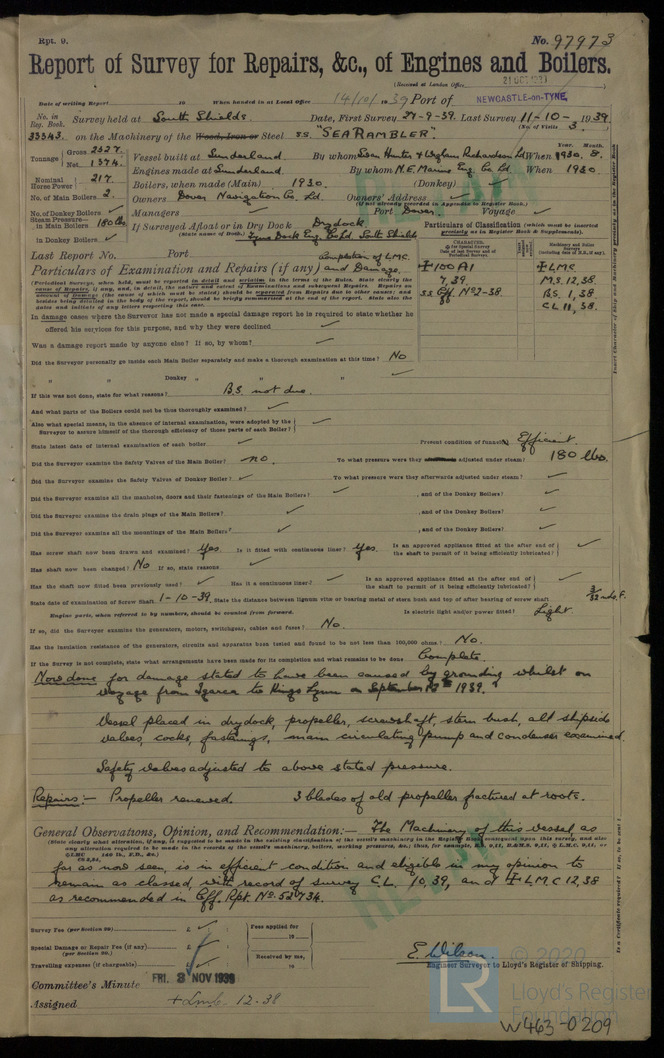 Rpt. 9.
No. 97973
Report of Survey for Repairs, &c., of Engines and Boilers.
(Received at London Office
Date of writing Report 19 When handed in at Local Office 14/10/1939 Port of NEWCASTLE-on-TYNE.
No. in Reg. Book. Survey held at South Shields Date, First Survey 27-9-39. Last Survey 11-10-1939
(No. of Visits 3.)
33343. on the Machinery of the Wood, Iron or Steel S.S. "SEA RAMBLER".
Tonnage Gross 2327 Net 1374. Vessel built at Sunderland By whom Swan Hunter & Wigham Richardson Ld When 1930. 8.
Year. Month.
Nominal Horse Power 217 Engines made at Sunderland By whom N.E. Marine Eng. Co Ld. When 1930
No. of Main Boilers 2. Boilers, when made (Main) 1930. (Donkey) ✓
Owners Dover Navigation Co. Ld. Owners' Address ✓
(if not already recorded in Appendix to Register Book.)
No. of Donkey Boilers ✓ Managers Port Dover Voyage ✓
Steam Pressure in Main Boilers 180 lbs If Surveyed Afloat or in Dry Dock Drydock
(State name of Dock.) Tyne Dock Eng. Co Ld. South Shields
in Donkey Boilers ✓
Particulars of Classification (which must be inserted precisely as in Register Book & Supplements).
Last Report No. Port
Completion of LMC.
Particulars of Examination and Repairs (if any) and Damage.
✠ 100 A1
7,39.
S.S. Nº2-38.
✠ LMC
M.S. 12,38
B.S. 1,38
CL 11,38.
In damage cases where the Surveyor has not made a special damage report he is required to state whether he
offered his services for this purpose, and why they were declined ✓
Was a damage report made by anyone else? If so, by whom? ✓
Did the Surveyor personally go inside each Main Boiler separately and make a thorough examination at this time? No
„ „ Donkey „ „ „ ✓
If this was not done, state for what reasons? B.S. not due.
And what parts of the Boilers could not be thus thoroughly examined? ✓
Also what special means, in the absence of internal examination, were adopted by the Surveyor to assure himself of the thorough efficiency of those parts of each Boiler? ✓
State latest date of internal examination of each boiler ✓ Present condition of funnel(s) Efficient.
Did the Surveyor examine the Safety Valves of the Main Boiler? no. To what pressure were they adjusted under steam? 180 lbs.
Did the Surveyor examine the Safety Valves of Donkey Boiler? ✓ To what pressure were they afterwards adjusted under steam? ✓
Did the Surveyor examine all the manholes, doors and their fastenings of the Main Boilers? ✓, and of the Donkey Boilers? ✓
Did the Surveyor examine the drain plugs of the Main Boilers? ✓, and of the Donkey Boilers? ✓
Did the Surveyor examine all the mountings of the Main Boilers? ✓, and of the Donkey Boilers? ✓
Has screw shaft now been drawn and examined? Yes. Is it fitted with continuous liner? Yes. Is an approved appliance fitted at the after end of the shaft to permit of it being efficiently lubricated? ✓
Has shaft now been changed? No If so, state reasons ✓
Has the shaft now fitted been previously used? ✓ Has it a continuous liner? ✓ Is an approved appliance fitted at the after end of the shaft to permit of it being efficiently lubricated? ✓
State date of examination of Screw Shaft 1-10-39. State the distance between lignum vitæ or bearing metal of stern bush and top of after bearing of screw shaft 3/32
Engine parts, when referred to by numbers, should be counted from forward. Is electric light and/or power fitted? Light
If so, did the Surveyor examine the generators, motors, switchgear, cables and fuses? No.
Has the insulation resistance of the generators, circuits and apparatus been tested and found to be not less than 100,000 ohms? No.
If the Survey is not complete, state what arrangements have been made for its completion and what remains to be done Complete.
Now done for damage stated to have been caused by grounding whilst on
voyage from Igarca to Kings Lynn on September 1939.
Vessel placed in drydock, propeller, screwshaft, stern bush, all shipside
valves, cocks, fastenings, main circulating pump and condenser examined.
Safety valves adjusted to above stated pressure.
Repairs:- Propeller renewed. 3 blades of old propeller fractured at roots.
General Observations, Opinion, and Recommendation:— The Machinery of this vessel as
far as now seen, is in efficient condition and eligible in my opinion to
remain as classed, with record of survey C.L. 10,39, and ✠ LMC 12,38
as recommended in Rpt. No. 52734.
Survey Fee (per Section 29) £ ✓ : Fees applied for
Special Damage or Repair Fee (if any) £ : 19
(per Section 29.)
Received by me,
Travelling expenses (if chargeable) £ : 19
E. Wilson.
Engineer Surveyor to Lloyd's Register of Shipping.
Committee's Minute FRI. 3 NOV 1939
Assigned + Lmc 12.38
LR © 2020
Lloyd's Register
Foundation
W463-0209